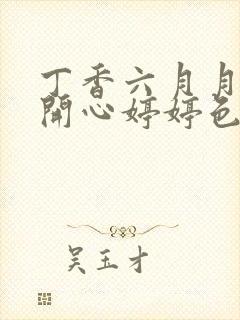 丁香六月月
開心婷婷色
吴玉才